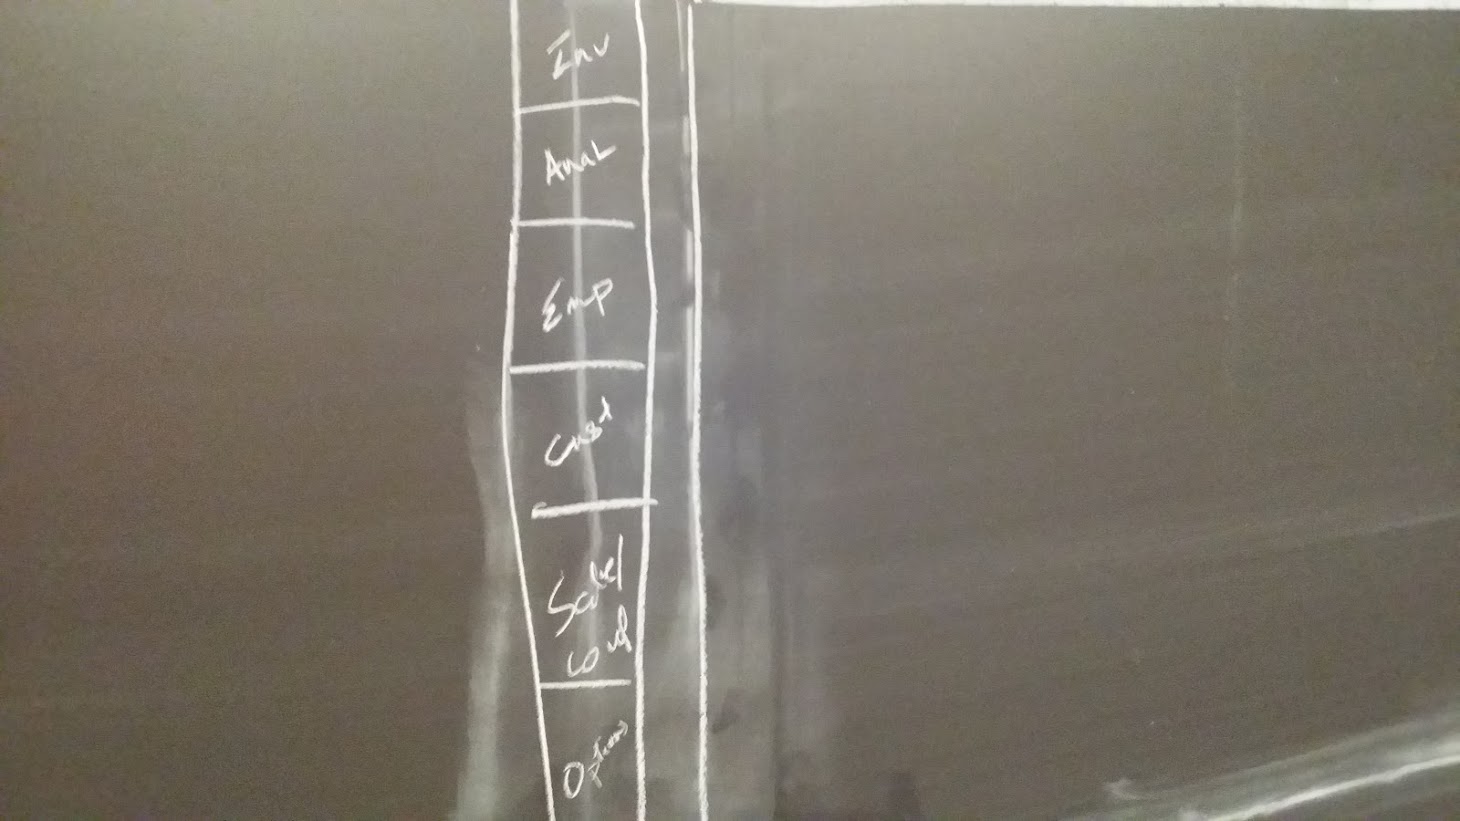 Inv
Anal
Emp
Cust
Save/
Load
Options